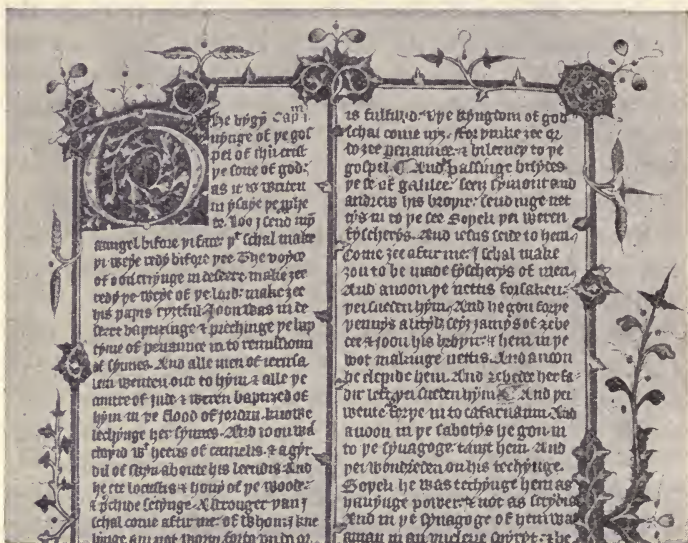 The bygyn Cap i m
nynge of þe gos
pel of ihu crist
þe sone of god:
as it is writen
in ysaye þe prphe
te. Loo j send myn
aungel bifore þi face: þt schal make
þi weye redy bifore þee The voyce
of oon cryynge in deserte make zee
redy þe weye of þe lord: make zee
his paþis ryztful Joon was in de
serte baptisinge & prechinge þe bap
tyme of penaunce in to remissioun
of synnes. And alle men of ierusa
lem wenten out to hym & alle þe
cuntre of jude & weren baptized of
hym in þe flood of jordan. knowe
lechynge her synnes. And ioon was
cloþid wt heeris of camelis. & a gyr
dil of skyn aboute his leendis And
he ete locustis & hony of þe woode.
& prchide seiynge. A stronger þan j
schal come aftir me: of whom j kne
linge am not worþi forto vndo or
is fulfillid. & þe kyngdom of god
schal come nyz. for þinke zee or
do zee penaunce. & bileeueþ to þe
gospel. And passinge bisydes
þe se of galilee. seez symont and
andrew his broþir. sendinge net
tys in to þe see Soþeli þei weren
fyscherys. And iesus seide to hem,
Come zee aftur me. I schal make
zou to be maad fyscherys of men,
And anoon þe nettis forsaken:
þei sueden hym, And he gon forþe
þennys a lityl: seez jamys of zebe
dee & joon his broþir. & hem in þe
bot makinge nettis. And anoon
he clepide hem. And zebede her fa-
dir left, þei sueden hym And þei
wente forþe in to cafarnaum And
anoon in þe sabotys he gon in
to þe synagoge tauzt hem And
þei wondreden on his techynge.
Soþeli he was techynge hem as
hauynge power. & not as scribis
And in þe synagoge of hem was
a man in an vnclene spiryt. & he